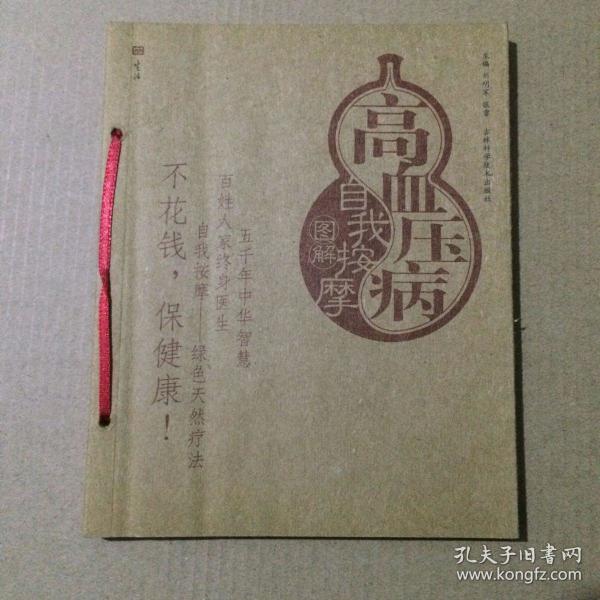 生活
主编 刘明军 张雷 吉林科学技术出版社
高血压病
自我按摩
图解
五千年中华智慧
百姓人家终身医生
自我按摩——绿色天然疗法
不花钱，保健康！
孔夫子旧书网
www.kongfz.com